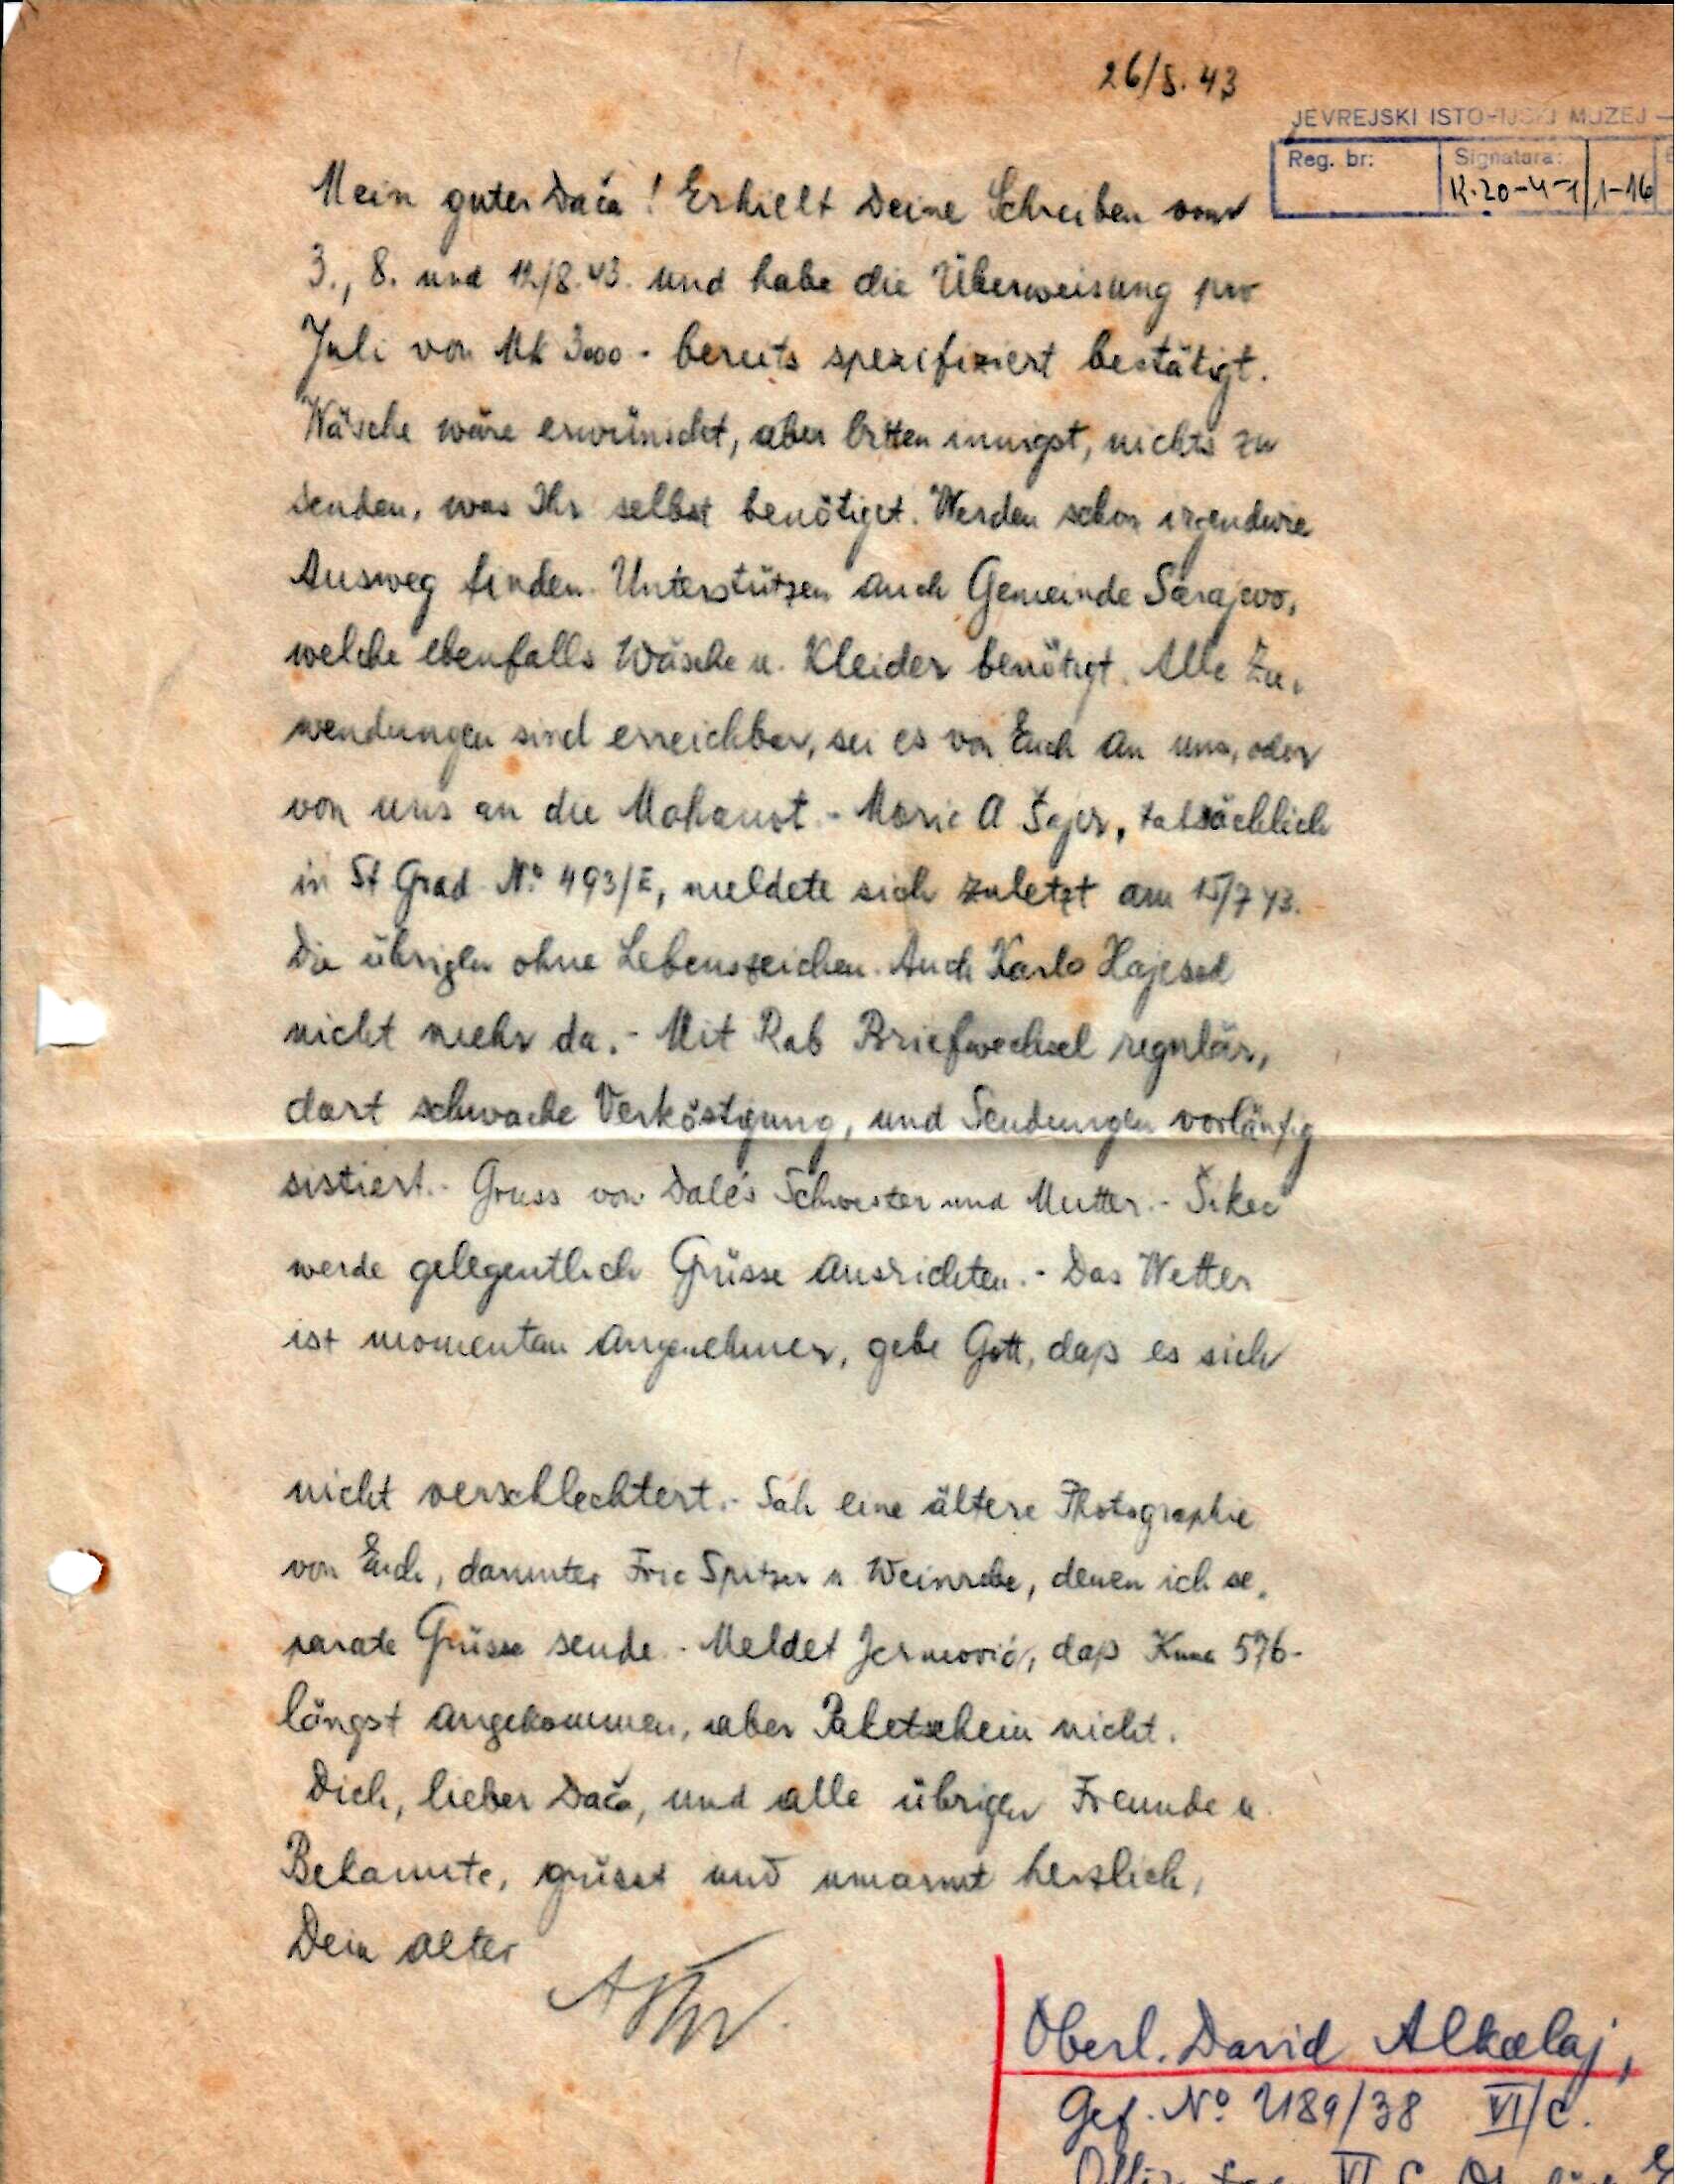 26/8.43
JEVREJSKI ISTORIJSKI MUZEJ —
Reg. br:
Signatura:
K.20-4-1/1-16
Mein guter Dača! Erhielt Deine Schreiben vom
3., 8. und 12/8.43. und habe die Überweisung pro
Juli von Mk 3000.- bereits spezifiziert bestätigt.
Wäsche wäre erwünscht, aber bitten innigst, nichts zu
senden, was Ihr selbst benötiget. Werden schon irgendwie
Ausweg finden. Unterstützen auch Gemeinde Sarajevo,
welche ebenfalls Wäsche u. Kleider benötigt. Alle Zu-
wendungen sind erreichbar, sei es von Euch an uns, oder
von uns an die Mahanot.- Moric A Šajer, tatsächlich
in St Grad No 493/E, meldete sich zuletzt am 15/7 43.
Die übrigen ohne Lebenszeichen. Auch Karlo
nicht mehr da.- Mit Rab Briefwechsel regulär,
dort schwache Verköstigung, und Sendungen vorläufig
sistiert.- Gruss von Dale's Schwester und Mutter.-
werde gelegentlich Grüsse ausrichten.- Das Wetter
ist momentan angenehmer, gebe Gott, daß es sich
nicht verschlechtert.- Sah eine ältere Photographie
von Euch, darunter Fric Spitzer u. Weinrebe, denen ich se-
parate Grüsse sende.- Meldet daß Kuna 576.-
längst angekommen, aber Paketschein nicht.
Dich, lieber Dača, und alle übrigen Freunde u.
Bekannte, grüsst und umarmt herzlich,
Dein alter
Oberl. David Alkalaj,
Gef. No 2189/38 VI/C.
VI C